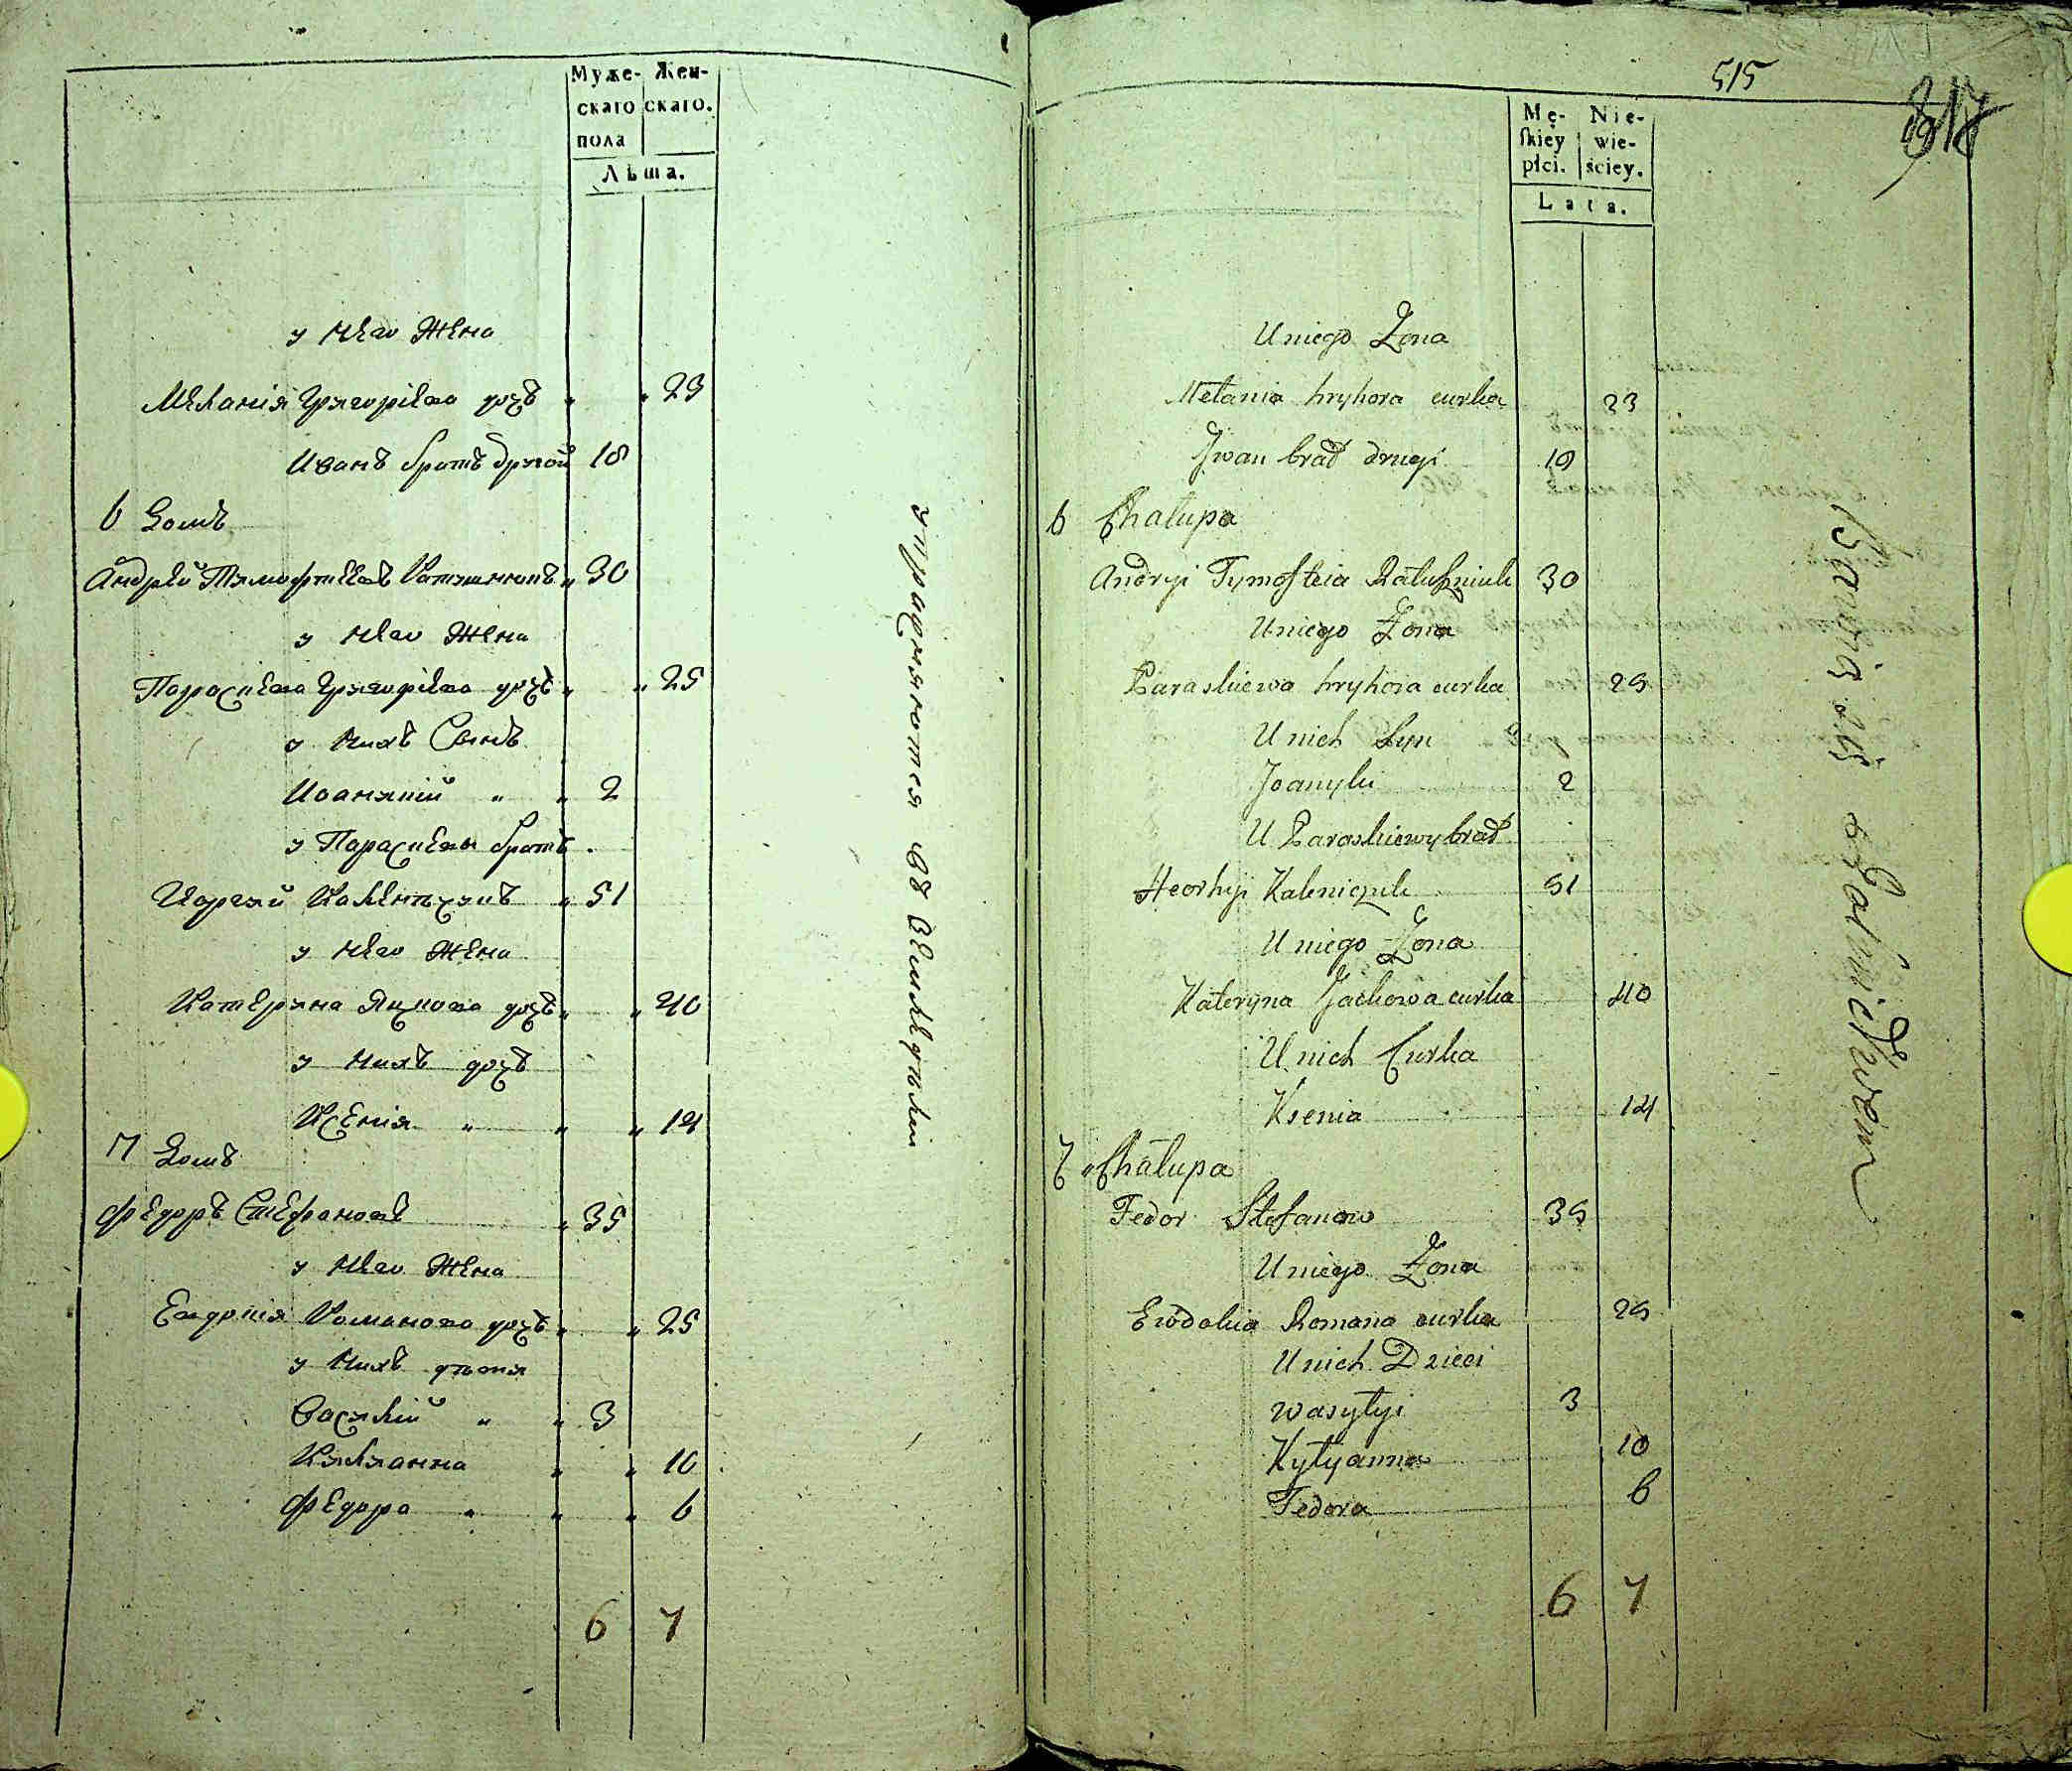 Муже- Жен-
скаго скаго.
пола
Лѣта.
у него жена
Меланія Григоріева дочъ " " 23
Иванъ братъ другой 18
6 Домъ
Андрей Тимофтеевъ Ратушнюкъ " 30
у него жена
Параскева Григоріева дочъ " " 25
у нихъ Сынъ
Иоаникій " " 2
у Параскевы братъ
Иоргій Каленичукъ " 51
у него жена
Катерина Яцкова дочъ " " 40
у нихъ дочъ
Ксенія " " " 14
7 Домъ
Федоръ Стефановъ " 35
у него жена
Евдокія Романова дочъ " " 25
у нихъ дети
Василій " " 3
Килианна " " 10
Федора " " " 6
6 7
упражняются въ земледѣліи
515
Mę- Nie-
skiey wie-
płci. ściey.
Lata.
U niego Żona
Melania hryhora curka 23
Jwan brat drugi 18
6 Chałupa
Andryi Tymofteia Ratuszniuk 30
U niego Żona
Paraskiewa hryhora curka 25
U nich Syn
Joanyki 2
U Paraskiewy brat
Heorhyi Kaleniczuk 51
U niego Żona
Kateryna Jackowa curka 40
U nich Curka
Ksenia 14
7 Chałupa
Fedor Stefanow 35
U niego Żona
Ewdokia Romana curka 25
U nich Dzieci
Wasyłyi 3
Kyłyanna 10
Fedora 6
6 7
Bawią się Rolnictwem